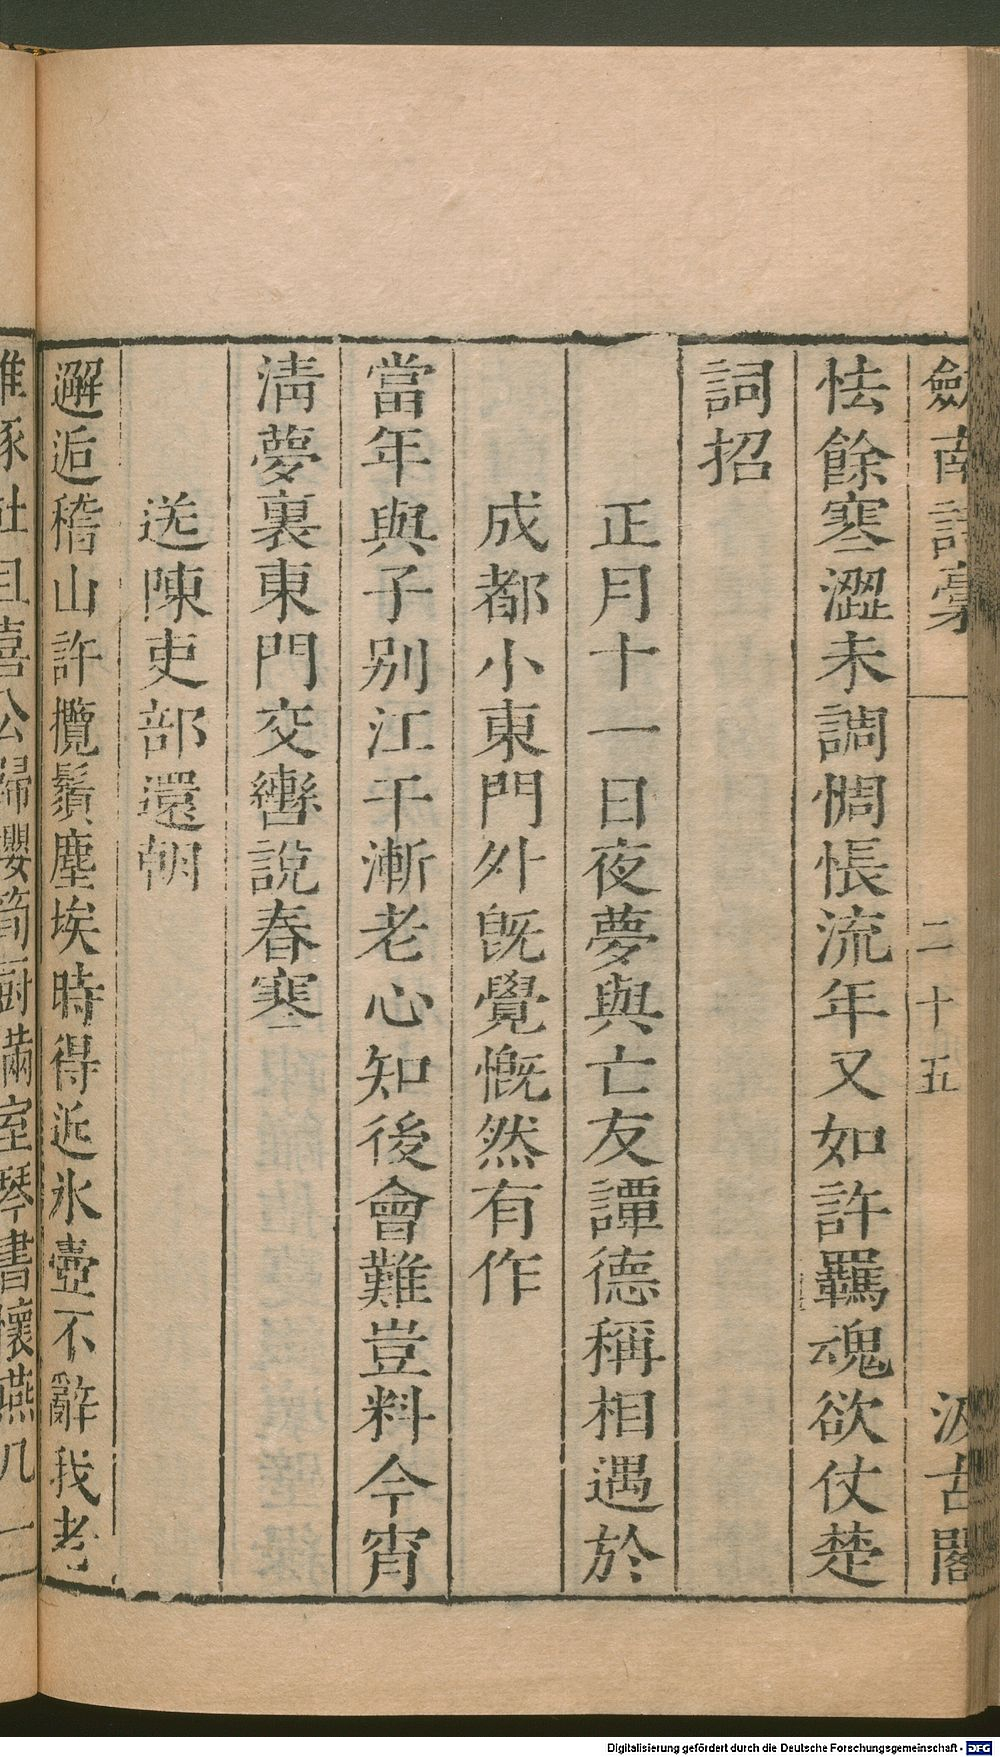 劍南詩稾 二十五 汲古閣
怯餘寒澀未調惆悵流年又如許羈魂欲仗楚
詞招
正月十一日夜夢與亡友譚德稱相遇於
成都小東門外旣覺慨然有作
當年與子别江干漸老心知後會難豈料今宵
淸夢裏東門交轡說春寒
送陳吏部還朝
邂逅稽山許攬鬚塵埃時得近冰壺不辭我老
社且喜公歸櫻筍厨滿室琴書懷燕几一
Digitalisierung gefördert durch die Deutsche Forschungsgemeinschaft - DFG